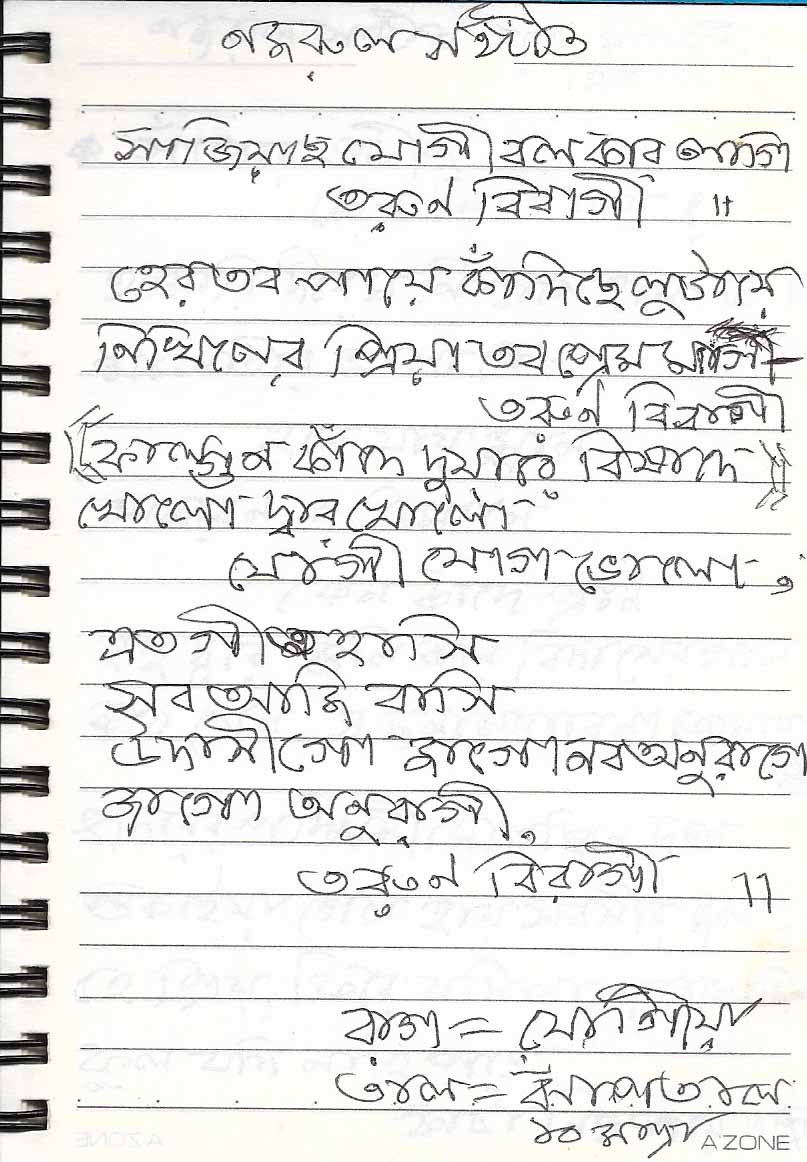 নজরুল সঙ্গীত
সাজিয়াছ যোগী বল কার লাগি
তরুণ বিবাগী ॥
হের তব পায়ে কাঁদিছে লুটায়ে
নিখিলের প্রিয়া তব প্রেম মাগি
তরুণ বিবাগী
(ফাল্গুন কাঁদে দুয়ারে বিষাদে)
খোলো দ্বার খোলো
যোগী যোগ ভোলো,
এত গীত হাসি
সব আজি বাসি
উদাসী গো জাগো নব অনুরাগে
জাগো অনুরাগী,
তরুণ বিবাগী ॥
রাগ = যোগিয়া
তাল = ঝাঁপতাল
১০ মাত্রা
A ZONE